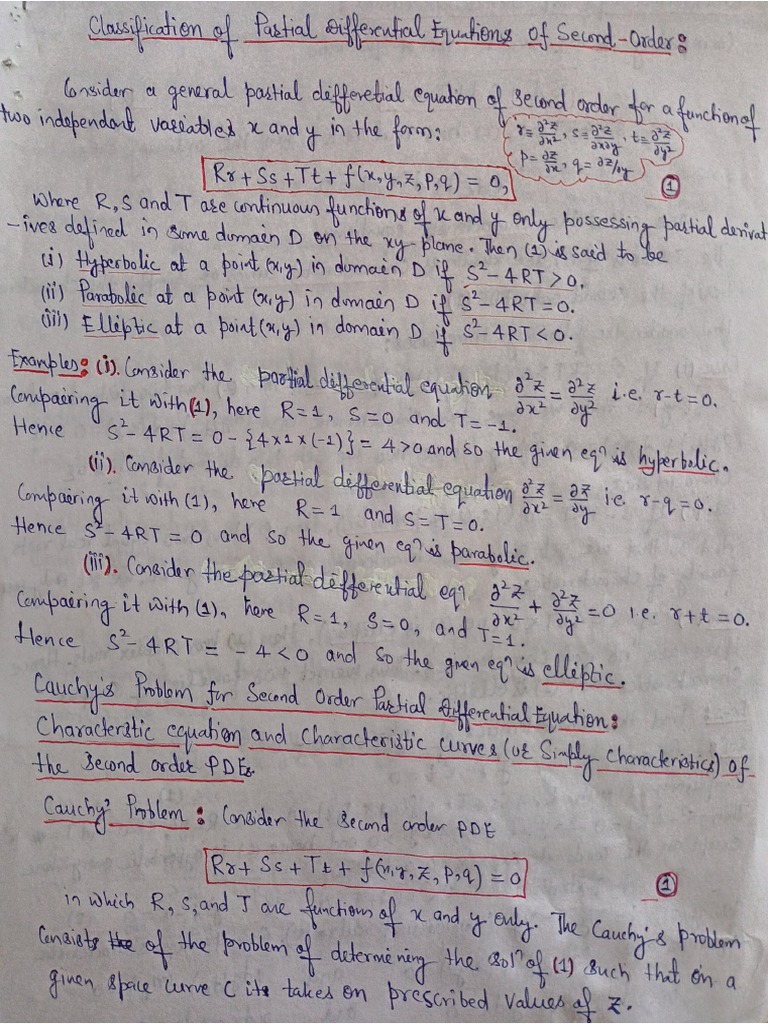 Classification of Partial Differential Equations of Second-Order:
Consider a general partial differetial equation of second order for a function of
two independent variables x and y in the form:
r = ∂²z/∂x², s = ∂²z/∂x∂y, t = ∂²z/∂y²
p = ∂z/∂x, q = ∂z/∂y
Rr + Ss + Tt + f(x, y, z, p, q) = 0, ①
where R, S and T are continuous functions of x and y only possessing partial derivat
-ives defined in some domain D on the xy-plane. Then (1) is said to be
(i) Hyperbolic at a point (x,y) in domain D if S² - 4RT > 0.
(ii) Parabolic at a point (x,y) in domain D if S² - 4RT = 0.
(iii) Elliptic at a point (x,y) in domain D if S² - 4RT < 0.
Examples: (i). Consider the partial differential equation ∂²z/∂x² = ∂²z/∂y² i.e. r-t=0.
Compairing it with (1), here R=1, S=0 and T=-1.
Hence S² - 4RT = 0 - {4×1×(-1)} = 4 > 0 and so the given eqⁿ is hyperbolic.
(ii). Consider the partial differential equation ∂²z/∂x² = ∂z/∂y i.e. r-q=0.
Compairing it with (1), here R=1 and S=T=0.
Hence S² - 4RT = 0 and so the given eqⁿ is parabolic.
(iii). Consider the partial differential eqⁿ ∂²z/∂x² + ∂²z/∂y² = 0 i.e. r+t=0.
Compairing it with (1), here R=1, S=0, and T=1.
Hence S² - 4RT = -4 < 0 and so the given eqⁿ is elliptic.
Cauchy's Problem for Second Order Partial Differential Equation:
Characteristic equation and Characteristic curves (or Simply Characteristics) of
the Second order PDEs.
Cauchy' Problem: Consider the second order PDE
Rr + Ss + Tt + f(x, y, z, p, q) = 0 ①
in which R, S, and T are function of x and y only. The Cauchy's problem
Consists of the problem of determining the solⁿ of (1) such that on a
given space curve C its takes on prescribed values of z.